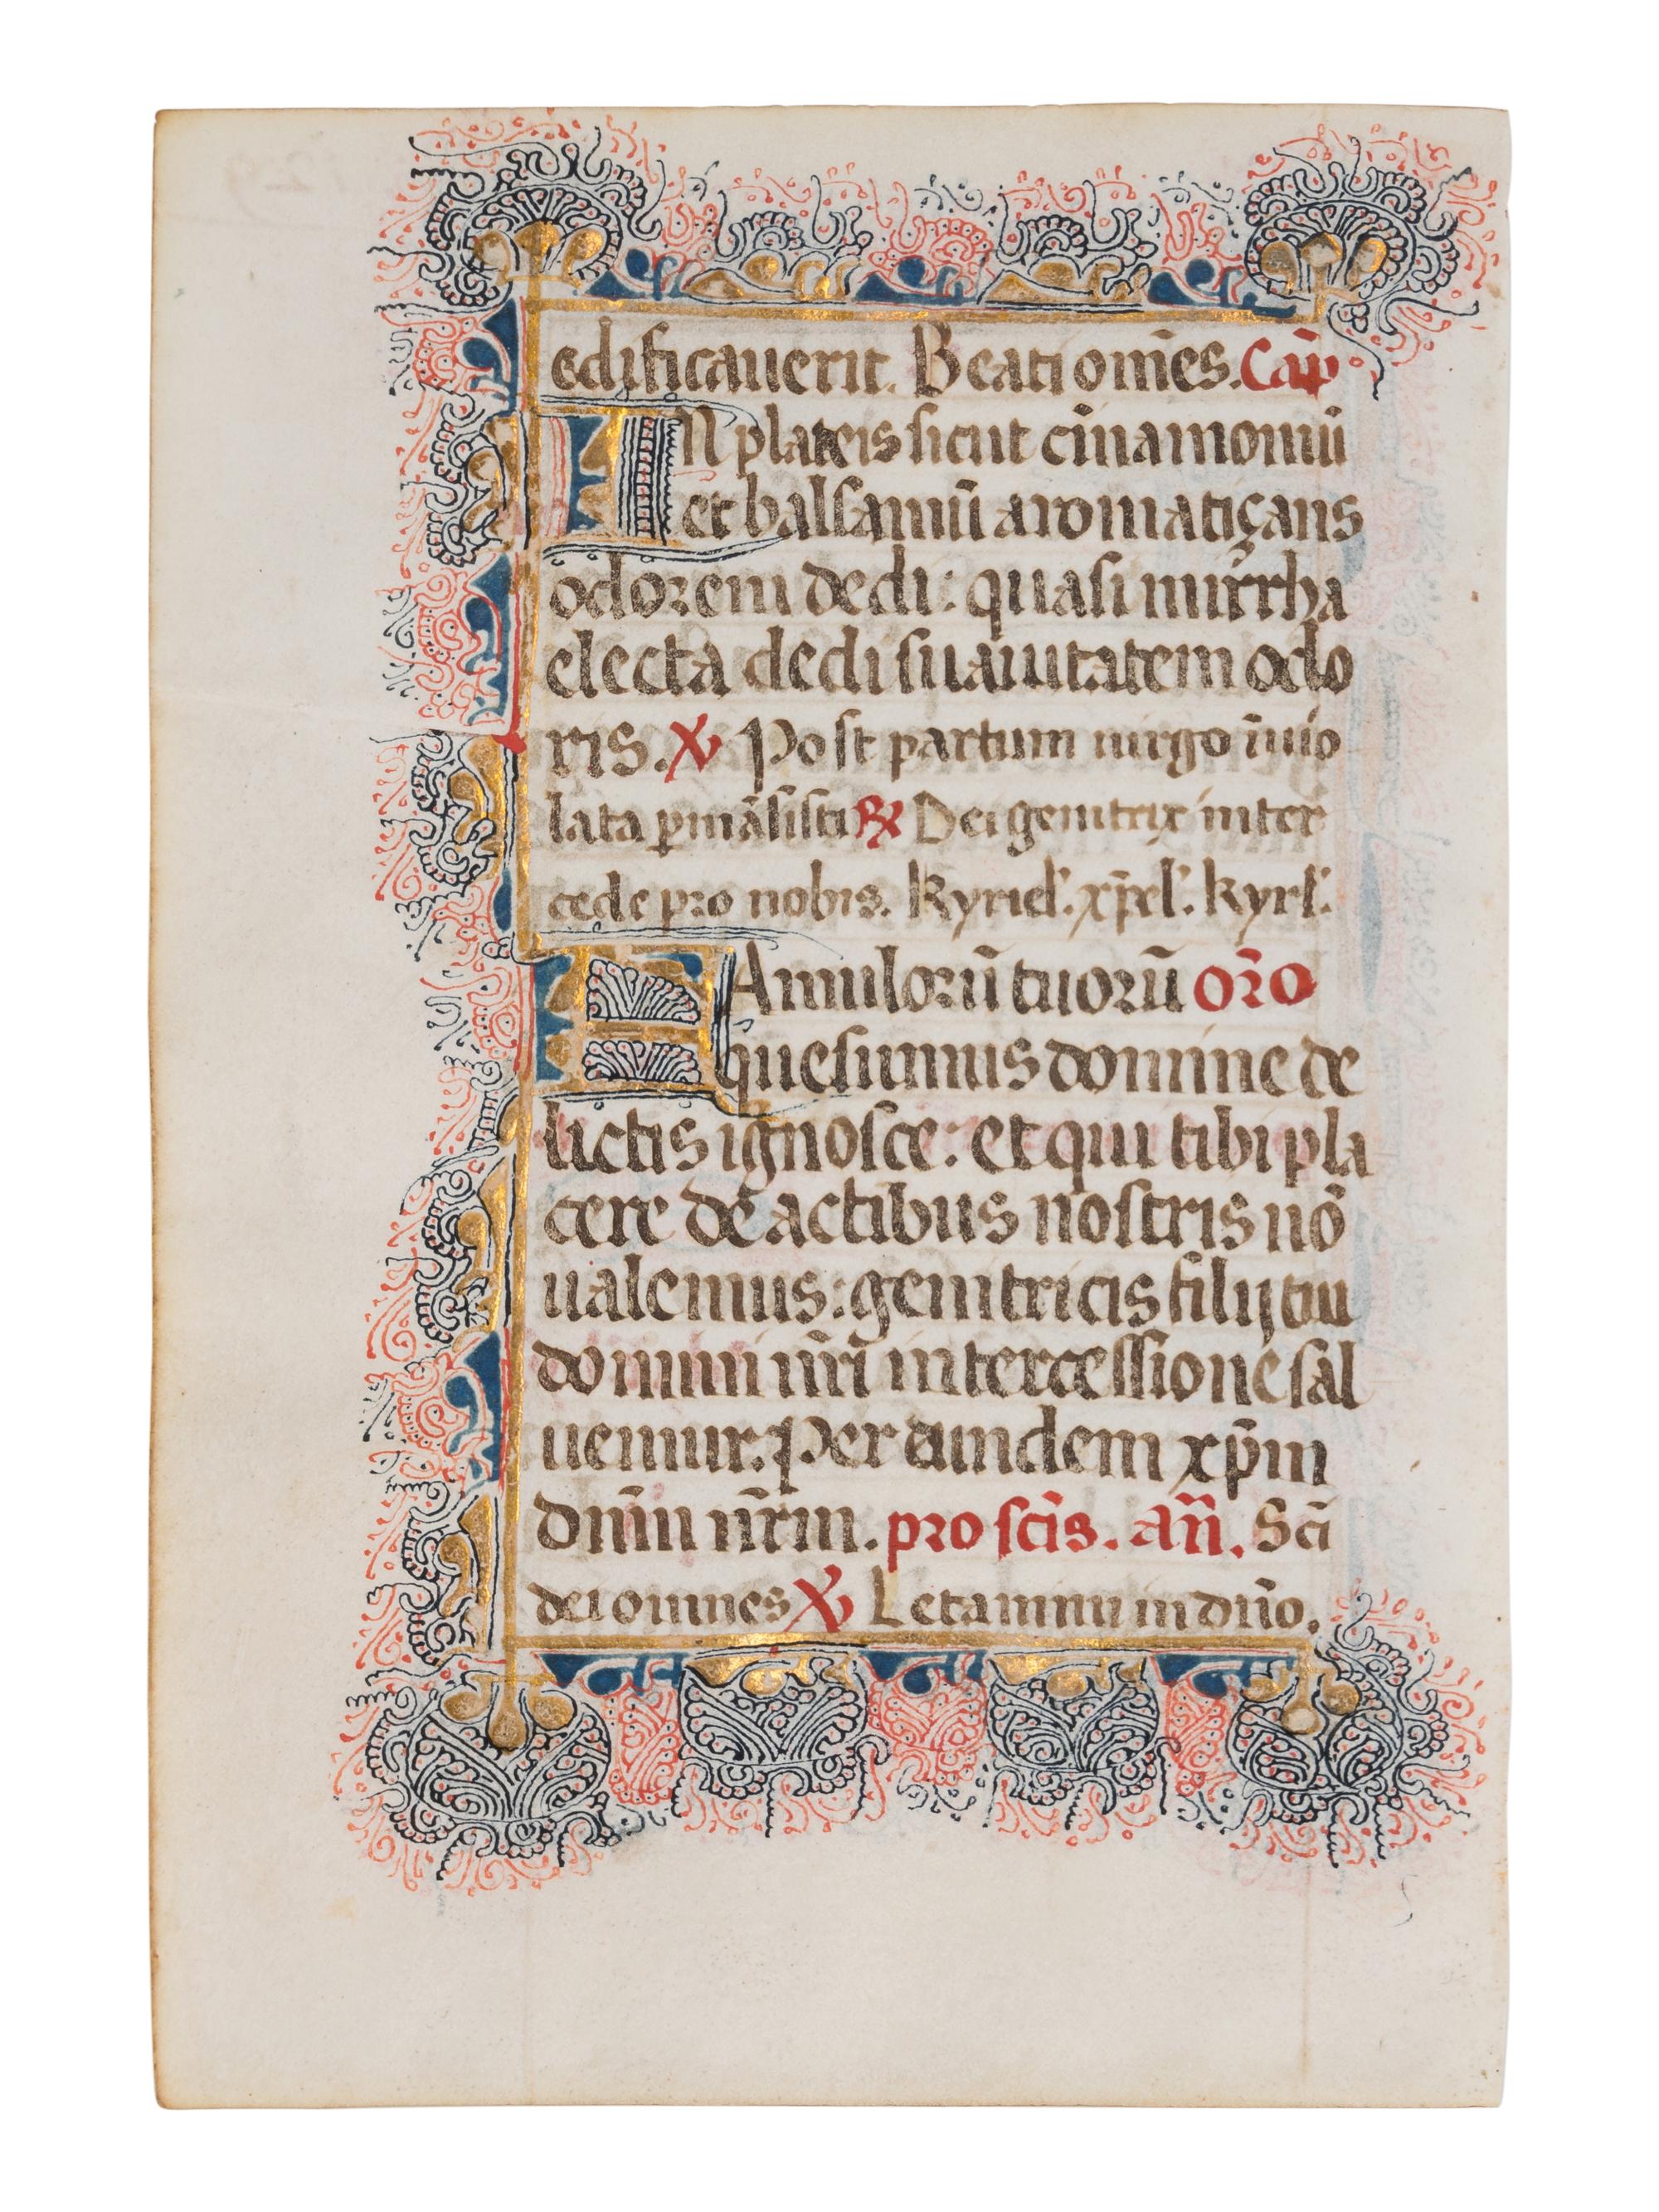 edificauerit. Beati om̄es. Cap̄
IN plateis sicut cin̄amomū
et balsamū aromatiçans
odorem dedi: quasi mirrha
electa dedi suauitatem odo
ris. ℣ Post partum uirgo īuio
lata ꝑmāsisti ℟ Dei genitrix inter
cede pro nobis. Kyriel'. xp̄el'. kyrl'.
FAmulorū tuorū or̄o
quesumus domine de
lictis ignosce: et qui tibi pla
cere de actibus nostris nō
ualemus: genitricis filij tui
domini nr̄i intercessione sal
uemur. Per eundem xp̄m
dn̄m nr̄m. pro sc̄is. an̄. Sc̄i
dei omnes ℣ Letamini in dn̄o.